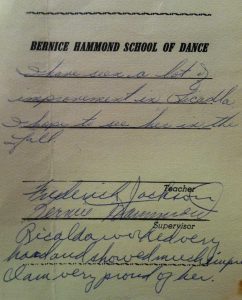 BERNICE HAMMOND SCHOOL OF DANCE
I have seen a lot of
improvement in
I hope to see her in the
fall.
Frederick Jackson
Teacher
Hammond
Supervisor
worked very
hard and showed much
I am very proud of her.